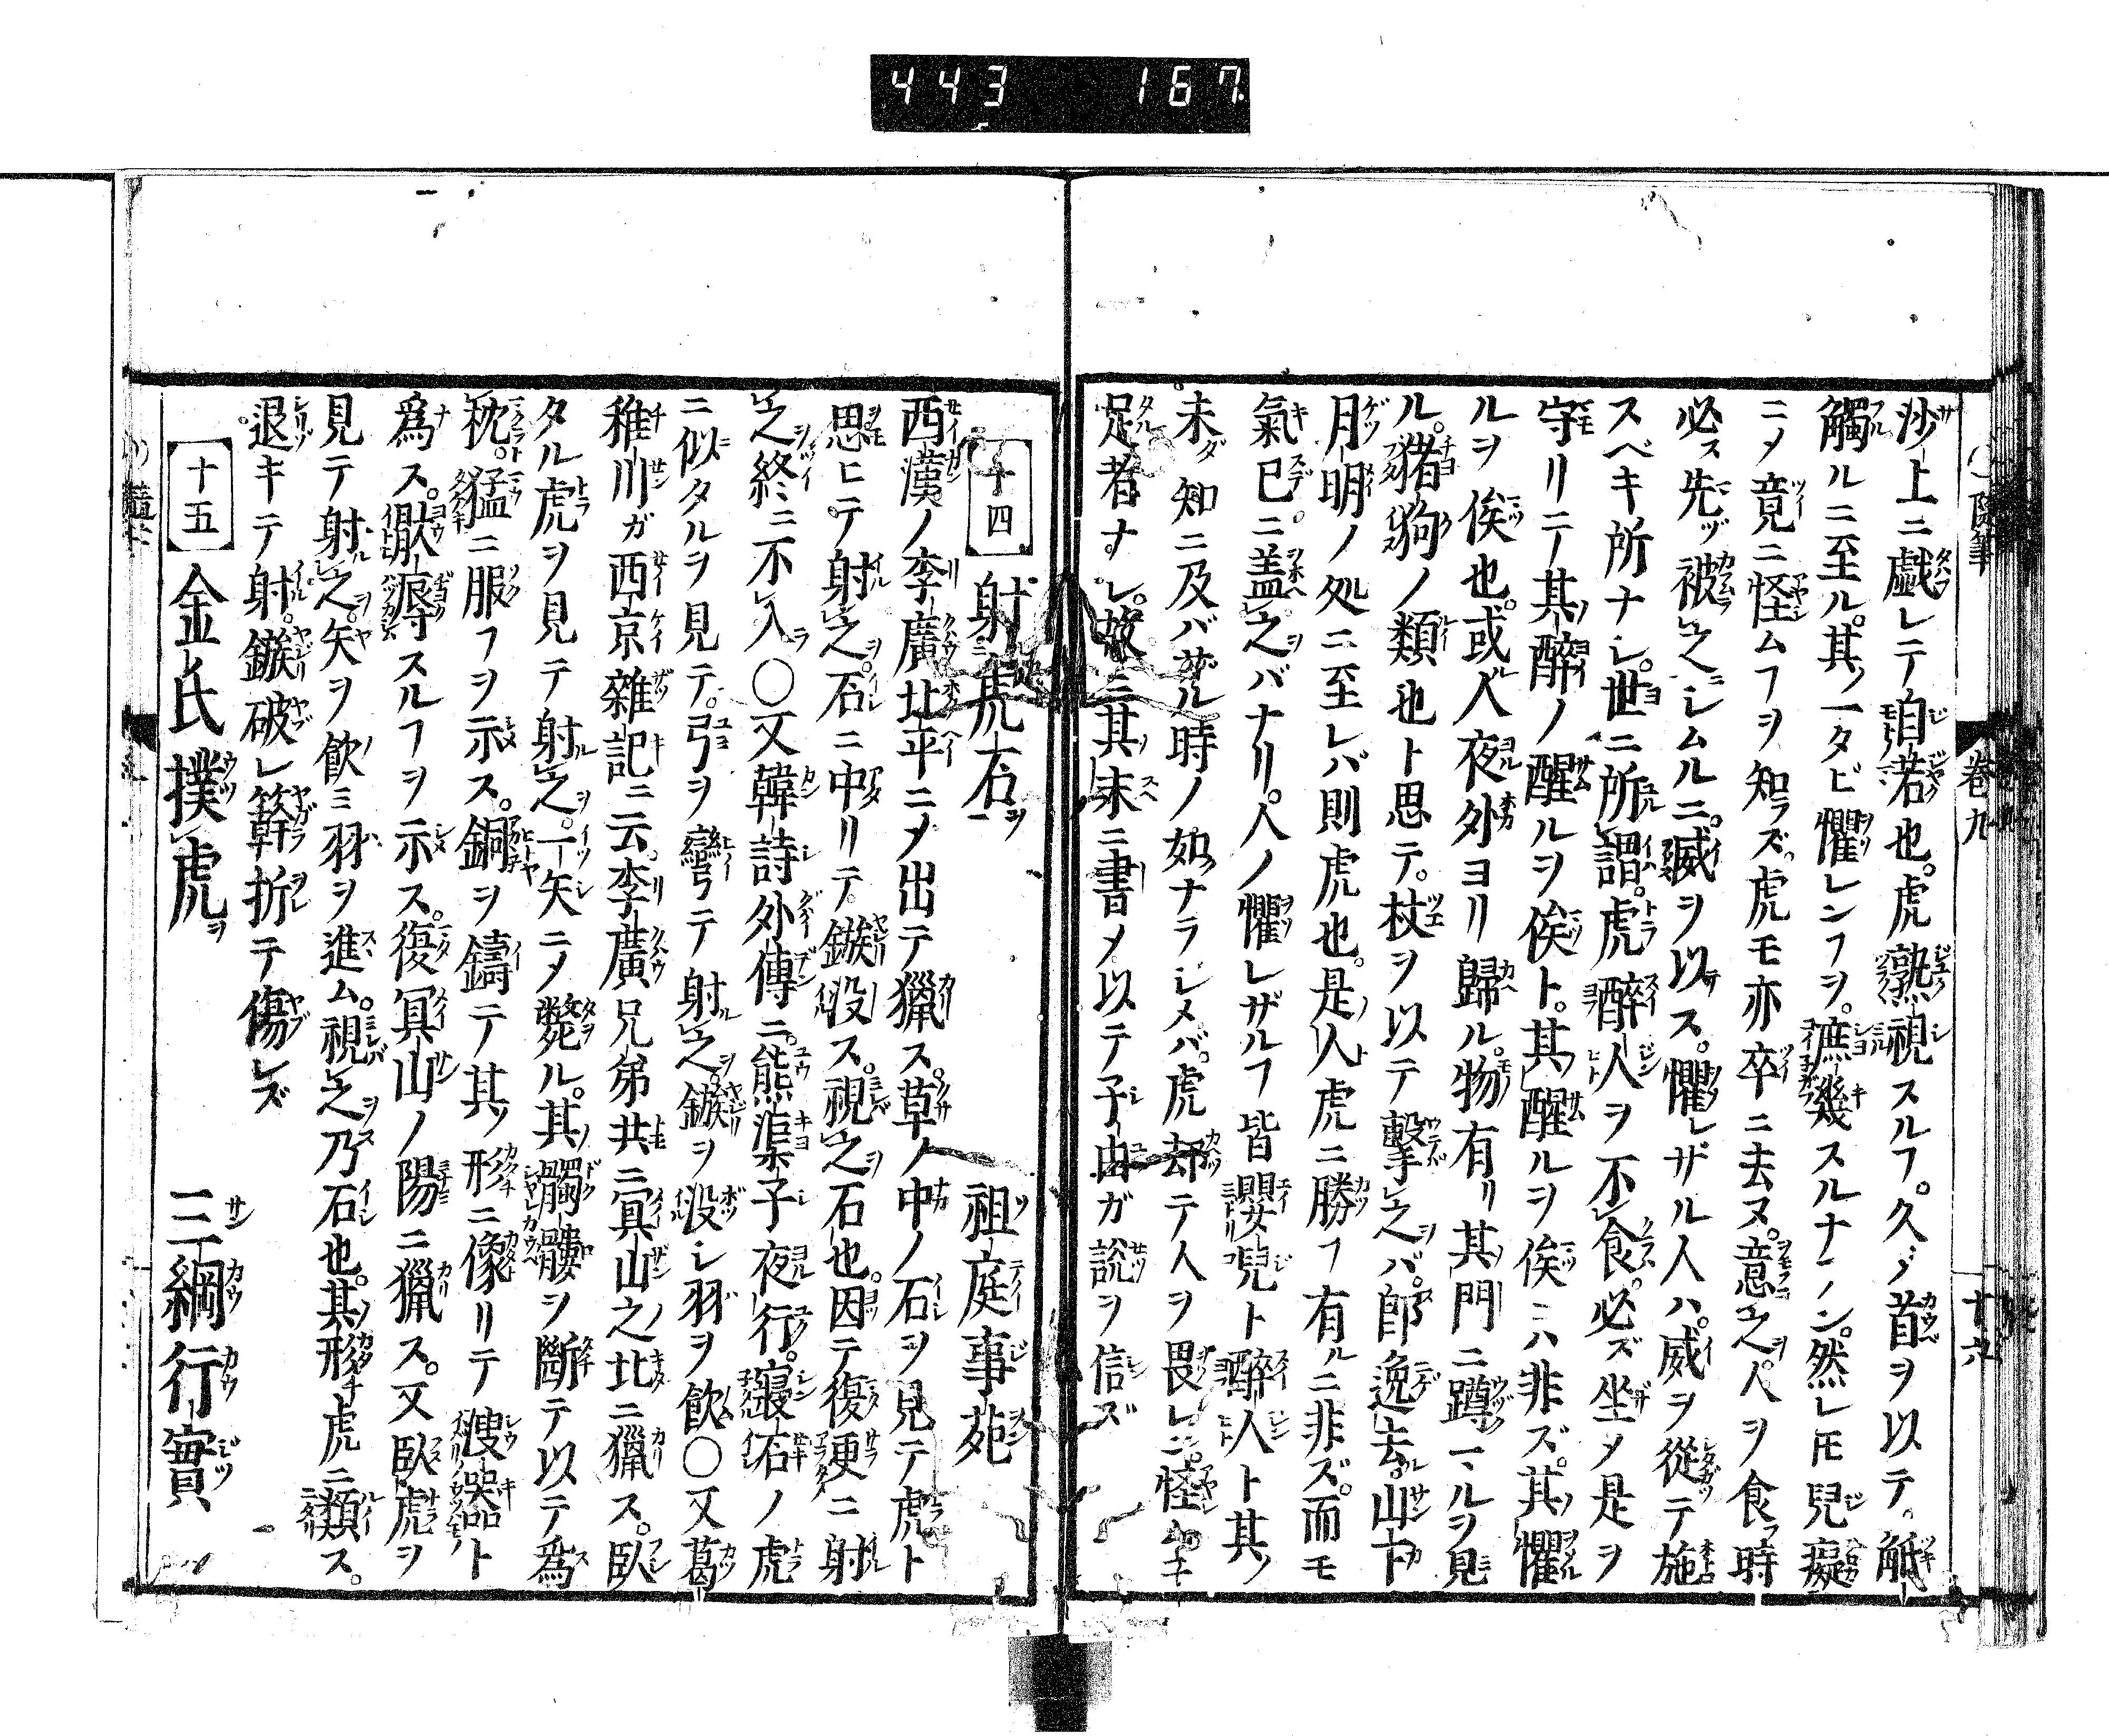 443 167
巻九
十六
沙上ニ戯レテ自若也。虎熟視スルヿ。久シ首ヲ以テ。觝
觸ルニ至ル。其ノ一タビ懼レンヿヲ。庶幾スルナラン。然レ𪜈兒癡
ニメ竟ニ怪ムヿヲ知ラズ。虎モ亦卒ニ去ヌ。意之人ヲ食フ時
必ス先ヅ被之シムルニ。威ヲ以ス。懼レザル人ハ。威ヲ從テ施
スベキ所ナシ。世ニ所謂。虎醉人ヲ不食。必ズ坐メ是ヲ
守リテ其醉ノ醒ルヲ俟ト。其醒ルヲ俟ニハ非ズ。其ノ懼
ルヲ俟也。或人夜外ヨリ歸ル。物有リ其門ニ蹲マルヲ見
ル。猪狗ノ類也ト思テ。杖ヲ以テ撃之バ。即逸去。山下
月明ノ処ニ至レバ則虎也。是人虎ニ勝ヿ有ルニ非ズ。而モ
氣已ニ。盖之バナリ。人ノ懼レザルヿ皆嬰兒ト醉人ト其ノ
未ダ知ニ及バザル時ノ如ナラシメバ。虎却テ人ヲ畏レン。怪ムニ
足ル者ナシ。故ニ其末ニ書メ以テ子由ガ説ヲ信ズ
十四 射虎右ヲ 祖庭事苑
西漢ノ李廣北平ニメ出テ獵ス。草ノ中ノ石ヲ見テ虎ト
思ヒテ射之。石ニ中リテ。鏃没ス。視之石也。因テ復更ニ射
之終ニ不入〇又韓詩外傳ニ。熊渠子夜行。寢石ノ虎
ニ似タルヲ見テ。弓ヲ彎テ射之。鏃ヲ没シ羽ヲ飲〇又葛
稚川ガ西京雜記ニ云。李廣兄弟共ニ冥山之北ニ獵ス。臥
タル虎ヲ見テ射之。一矢ニメ斃ル。其髑髏ヲ斷テ以テ爲
枕。猛ニ服ヿヲ示ス。銅ヲ鑄テ其ノ形ニ像リテ溲器ト
爲ス。厭辱スルヿヲ示ス。復冥山ノ陽ニ獵ス。又臥虎ヲ
見テ射之。矢ヲ飲ミ羽ヲ進ム。視之乃石也。其形チ虎ニ類ス。
退キテ射。鏃破レ簳折テ傷レズ
十五 金氏撲虎ヲ 三綱行實